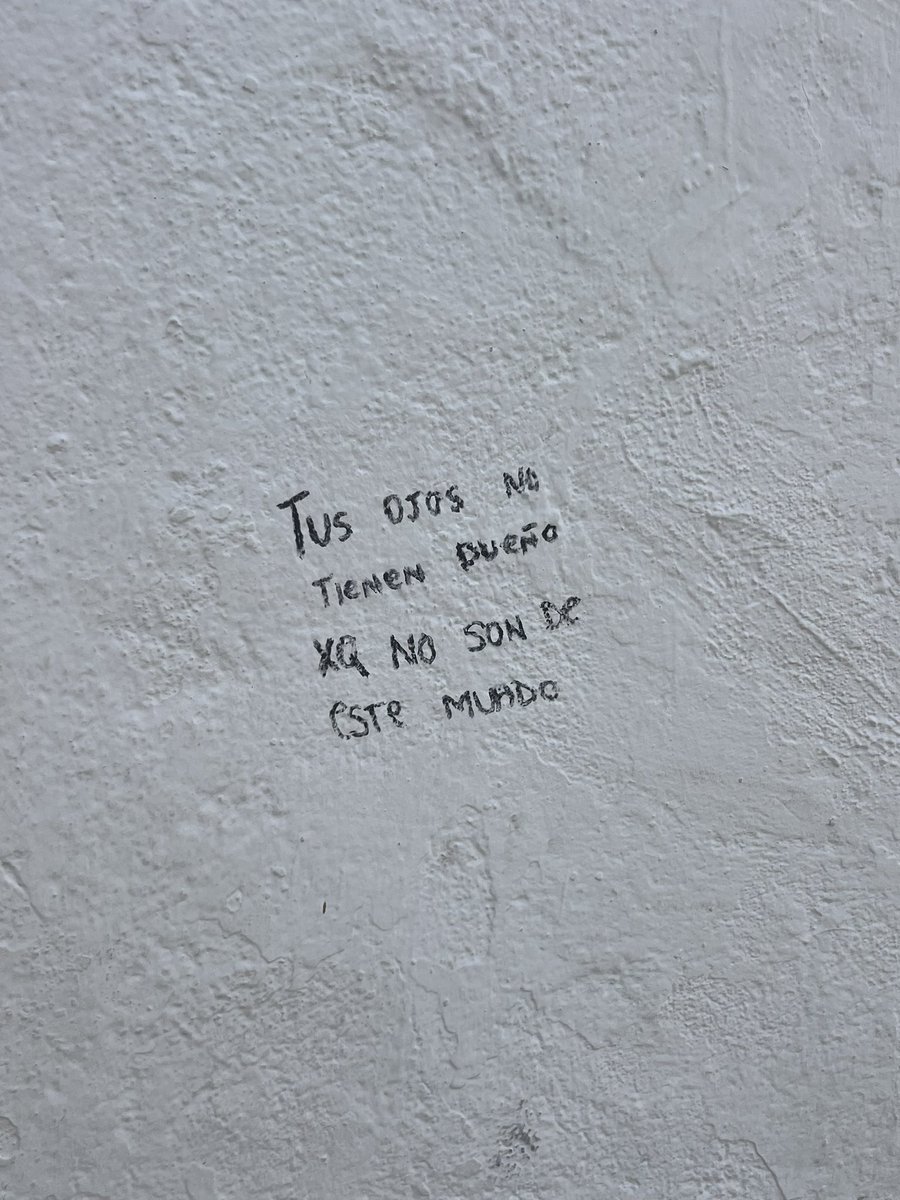 Tus OJOS NO
TIeNeN DUeÑO
XQ NO SON De
esTe MUNDO